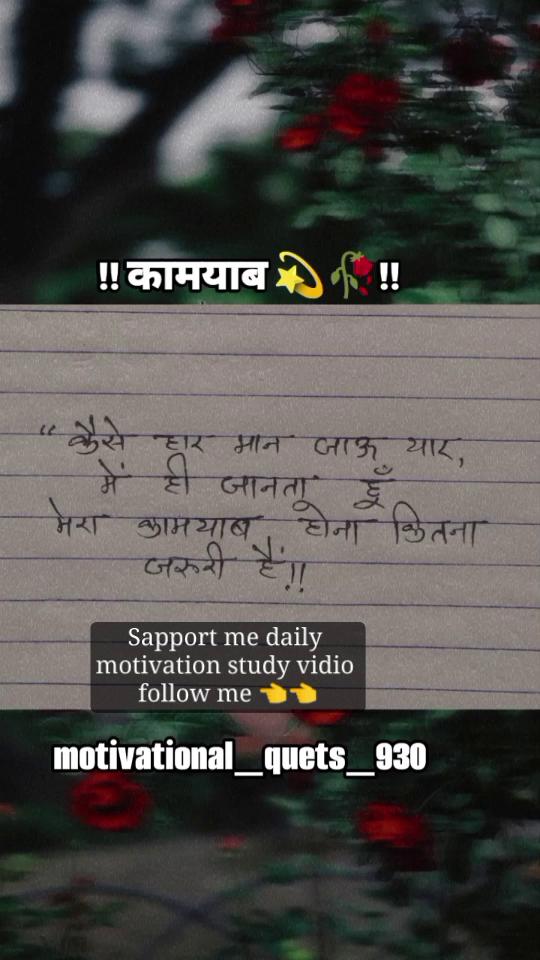 !! कामयाब 💫🥀!!
“ कैसे हार मान जाऊ यार,
में ही जानता हूँ
मेरा कामयाब होना कितना
जरुरी हैं!!
Sapport me daily
motivation study vidio
follow me 👈👈
motivational_quets_930